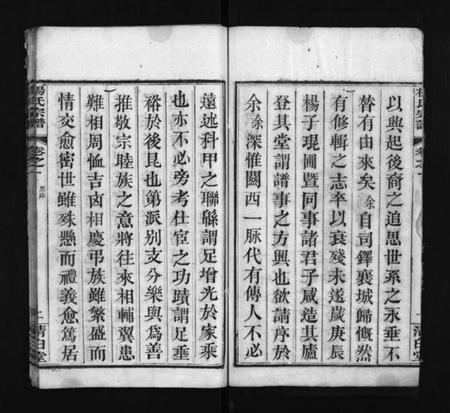 以興起後裔之追思世系之永垂不
替有由來矣余自司鐸襄城歸慨然
有修輯之志卒以衰殘未遂歲庚辰
楊子現圃暨同事諸君子咸造其廬
登其堂謂譜事之方興也欲請序於
余余深惟關西一脉代有傳人不必
遠述科甲之聯緜謂足增光於家乘
也亦不必旁考仕宦之功蹟謂足垂
裕於後昆也第派別支分樂與爲善
推敬宗睦族之意將往來相輔翼患
難相周恤吉凶相慶弔族雖繁盛而
情交愈密世雖殊懸而禮義愈篤居
楊氏宗譜
卷之一
清白堂